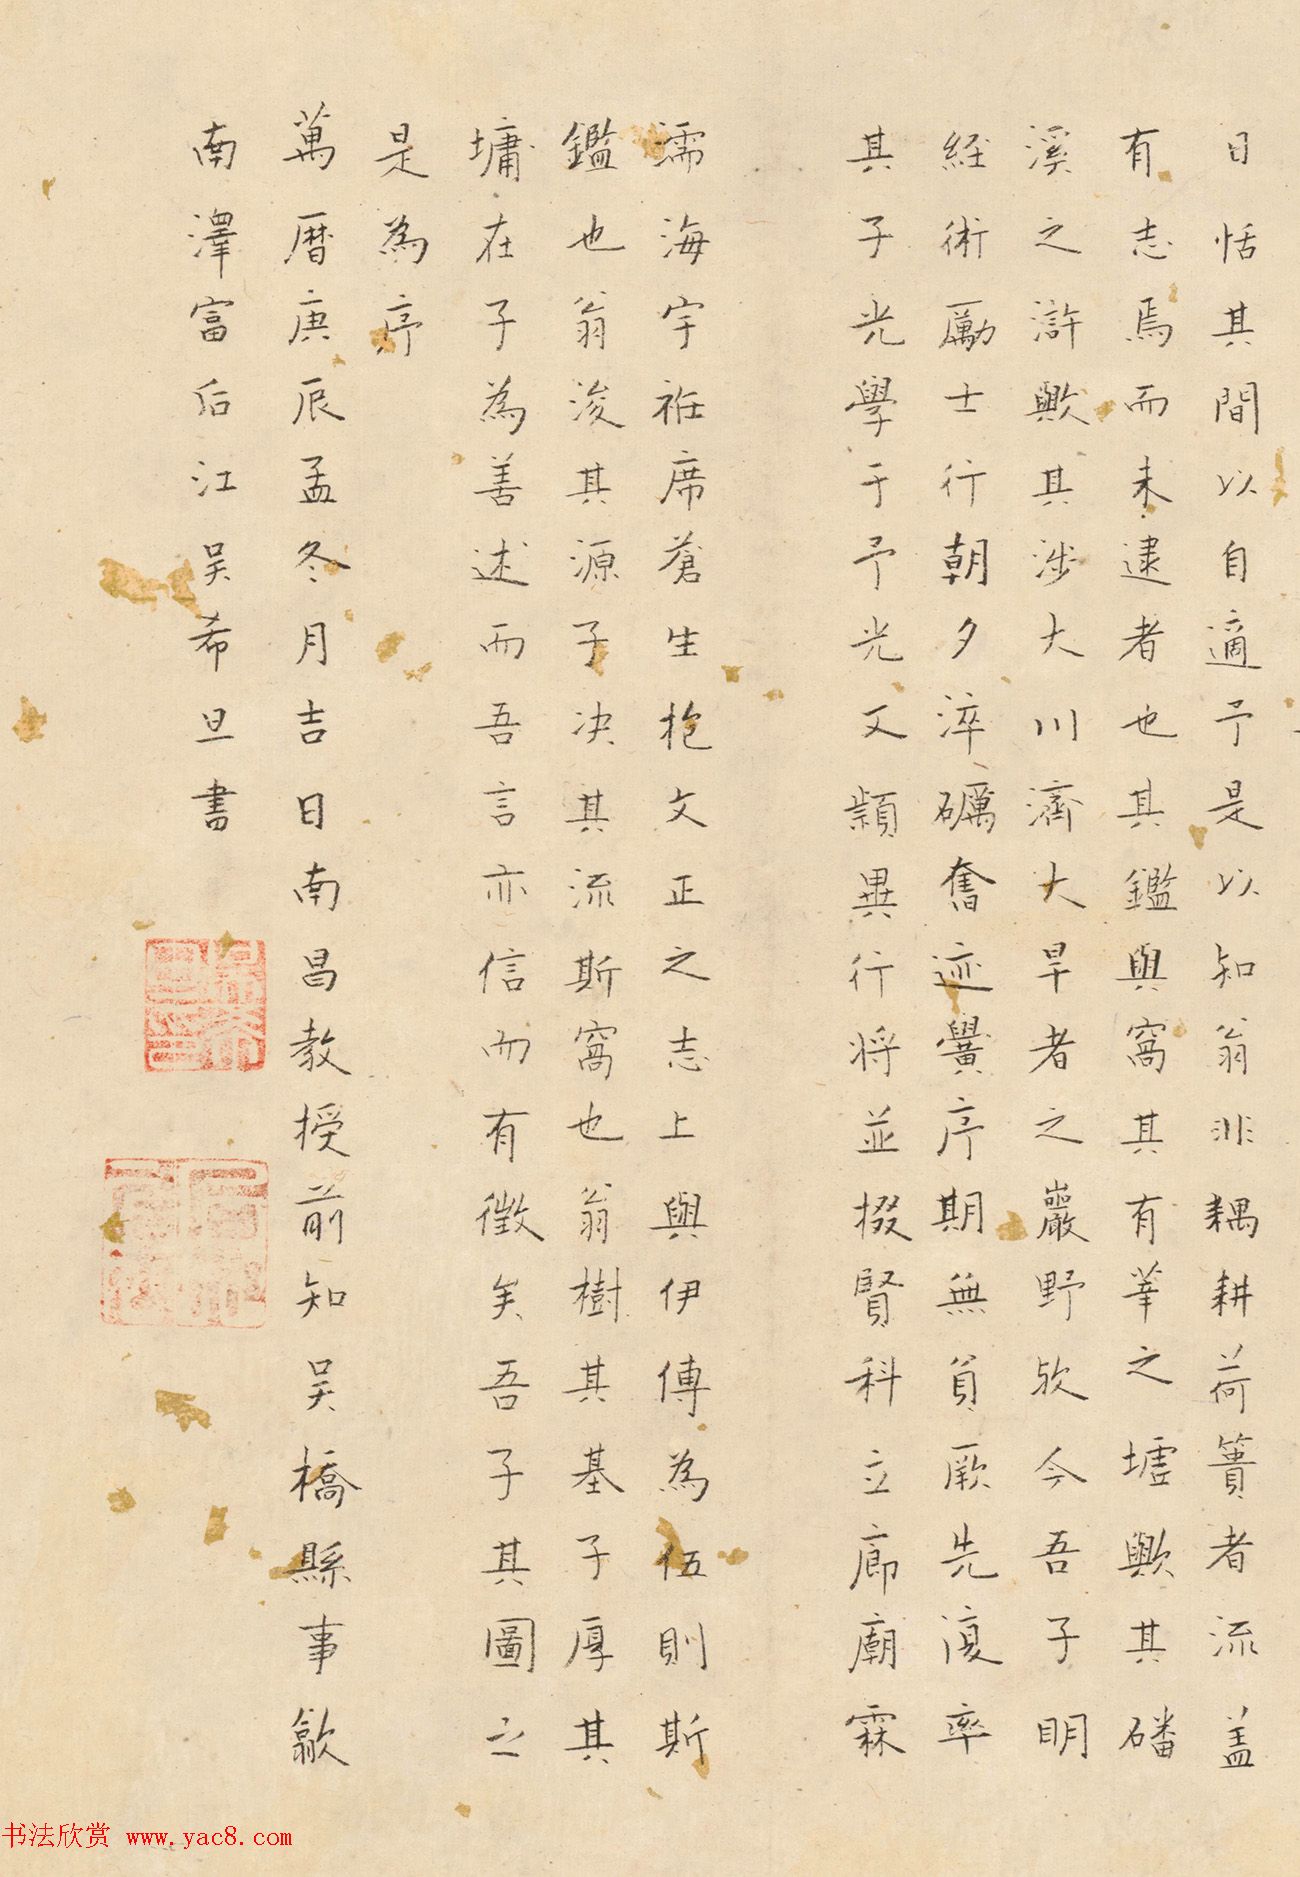 日恬其間以自適予是以知翁非耦耕荷蕢者流盖
有志焉而未逮者也其鑑與窩其有莘之墟歟其磻
溪之滸歟其涉大川濟大旱者之巖野欤今吾子明
経術勵士行朝夕淬礪奮迹黌序期無負厥先復率
其子光學于予光文穎異行將並掇賢科立廊廟霖
濡海宇袵席蒼生抱文正之志上與伊傅為伍則斯
鑑也翁浚其源子决其流斯窩也翁樹其基子厚其
墉在子為善述而吾言亦信而有徵矣吾子其圖之
是為序
萬曆庚辰孟冬月吉日南昌教授前知吴橋縣事歙
南澤富后江吴希旦書
书法欣赏 www.yac8.com